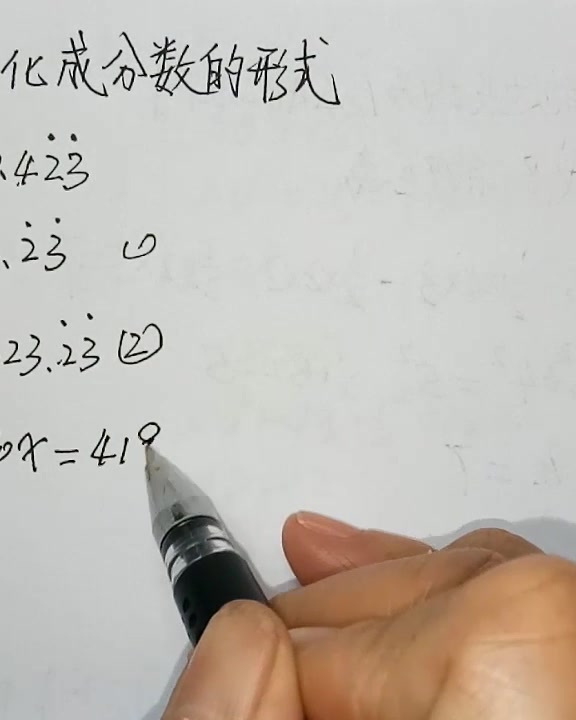 化成分数的形式
.42̇3̇
.2̇3̇ ①
23.2̇3̇ ②
0x=419